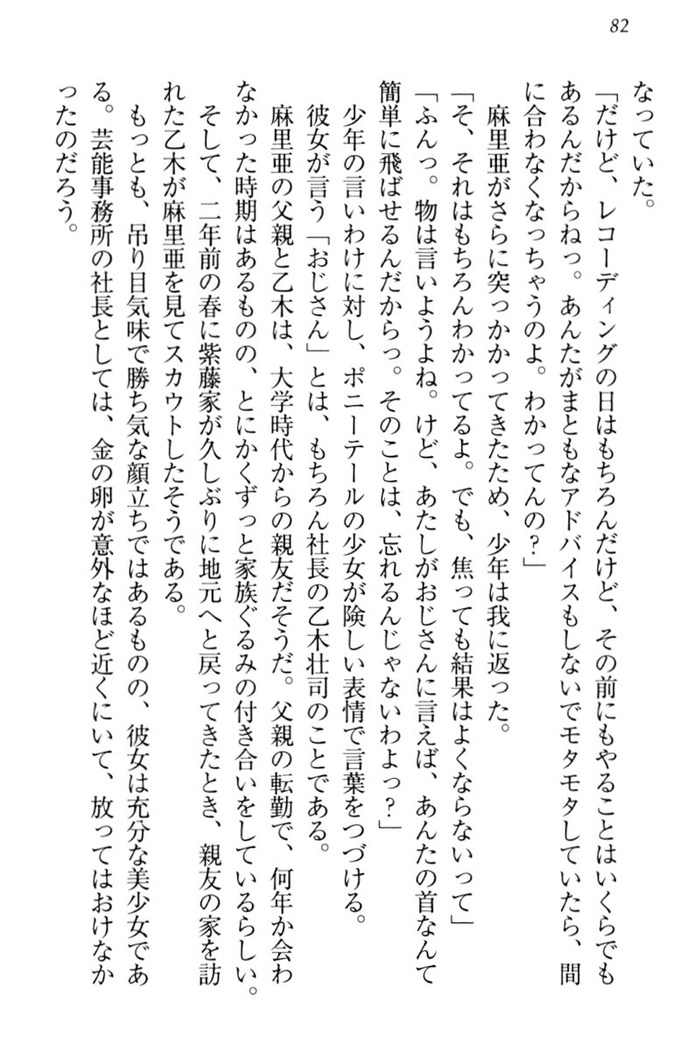 82
なっていた。
「だけど、レコーディングの日はもちろんだけど、その前にもやることはいくらでも
あるんだからねっ。あんたがまともなアドバイスもしないでモタモタしていたら、間
に合わなくなっちゃうのよ。わかってんの？」
麻里亜がさらに突っかかってきたため、少年は我に返った。
「そ、それはもちろんわかってるよ。でも、焦っても結果はよくならないって」
「ふんっ。物は言いようよね。けど、あたしがおじさんに言えば、あんたの首なんて
簡単に飛ばせるんだからっ。そのことは、忘れるんじゃないわよっ？」
少年の言いわけに対し、ポニーテールの少女が険しい表情で言葉をつづける。
彼女が言う「おじさん」とは、もちろん社長の乙木壮司のことである。
麻里亜の父親と乙木は、大学時代からの親友だそうだ。父親の転勤で、何年か会わ
なかった時期はあるものの、とにかくずっと家族ぐるみの付き合いをしているらしい。
そして、二年前の春に紫藤家が久しぶりに地元へと戻ってきたとき、親友の家を訪
れた乙木が麻里亜を見てスカウトしたそうである。
もっとも、吊り目気味で勝ち気な顔立ちではあるものの、彼女は充分な美少女であ
る。芸能事務所の社長としては、金の卵が意外なほど近くにいて、放ってはおけなか
ったのだろう。